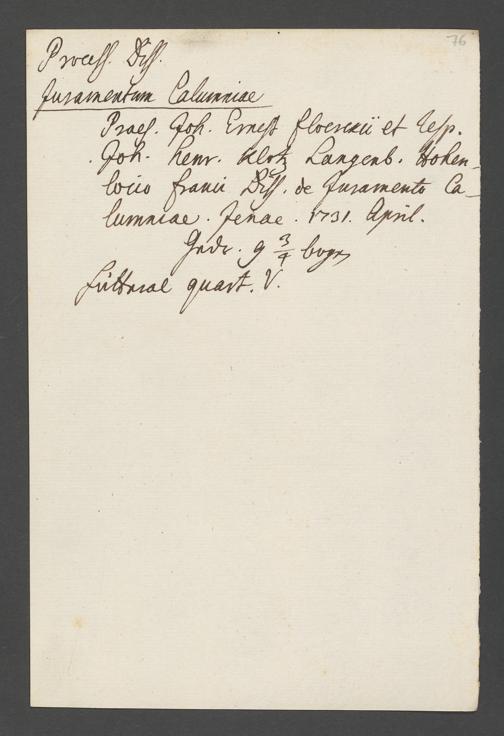 76
Process. Diss.
Juramentum Calumniae
Praes. Joh. Ernest Floerckii et Resp.
Joh. Henr. Klotz Langenb. Hohen-
loico Franci Diss. de Juramento Ca-
lumniae. Jenae. 1731. April.
Gedr. 9 3/4 bogen
quart. V.